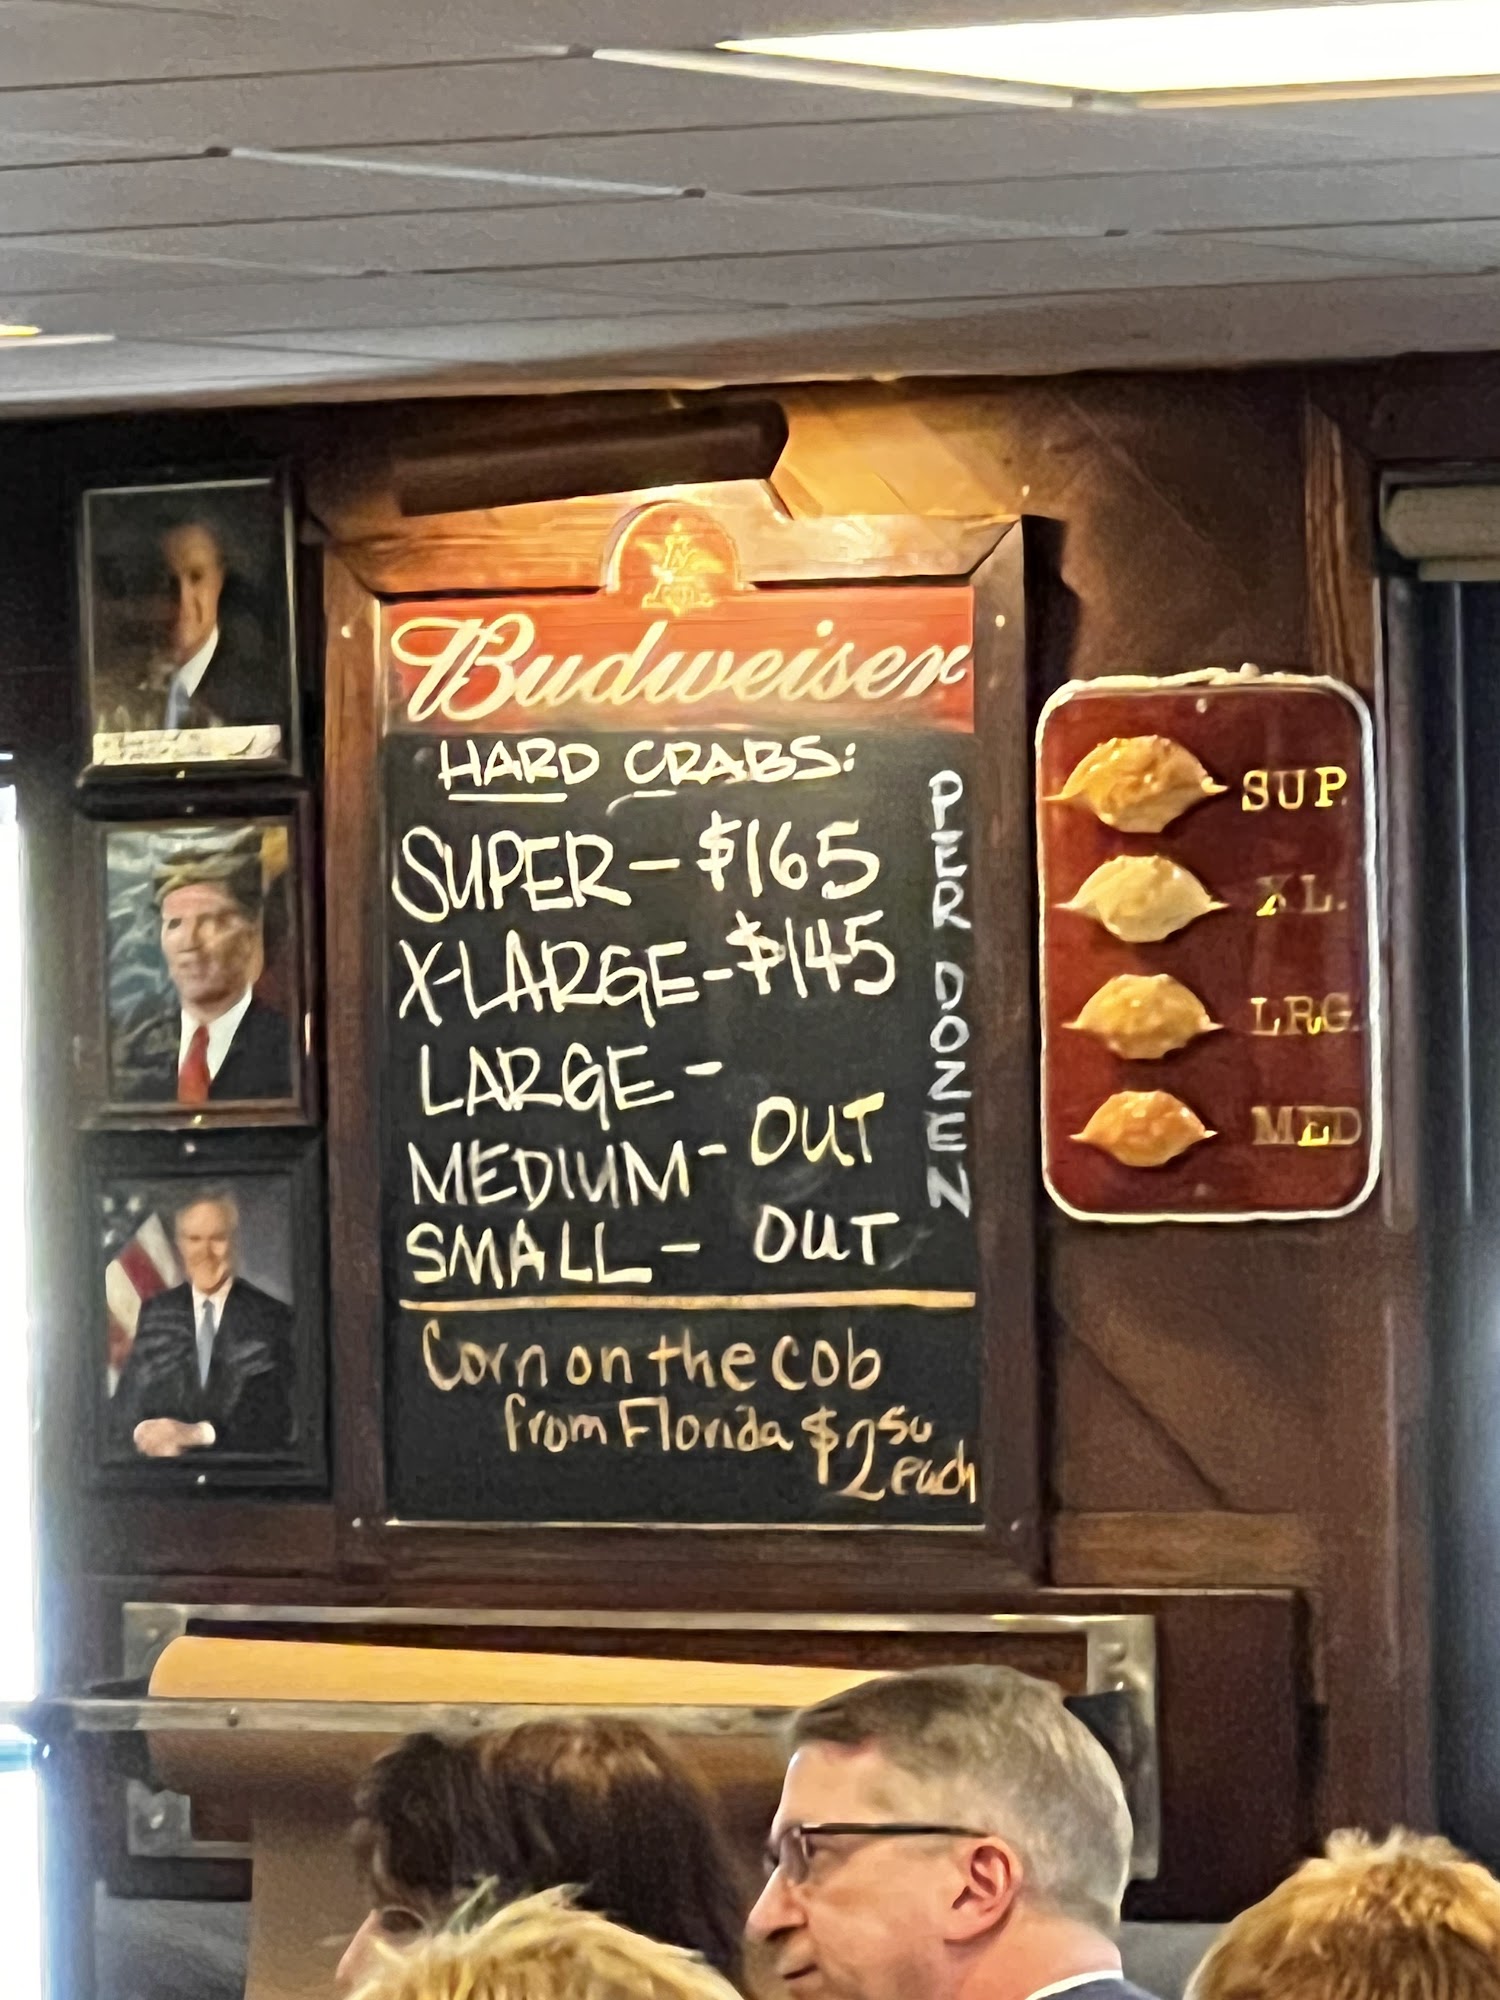 Budweiser
HARD CRABS:
SUPER - $165
X-LARGE - $145
LARGE -
MEDIUM - OUT
SMALL - OUT
PER DOZEN
Corn on the cob
from Florida $2 50
each
SUP.
XL.
LRG.
MED